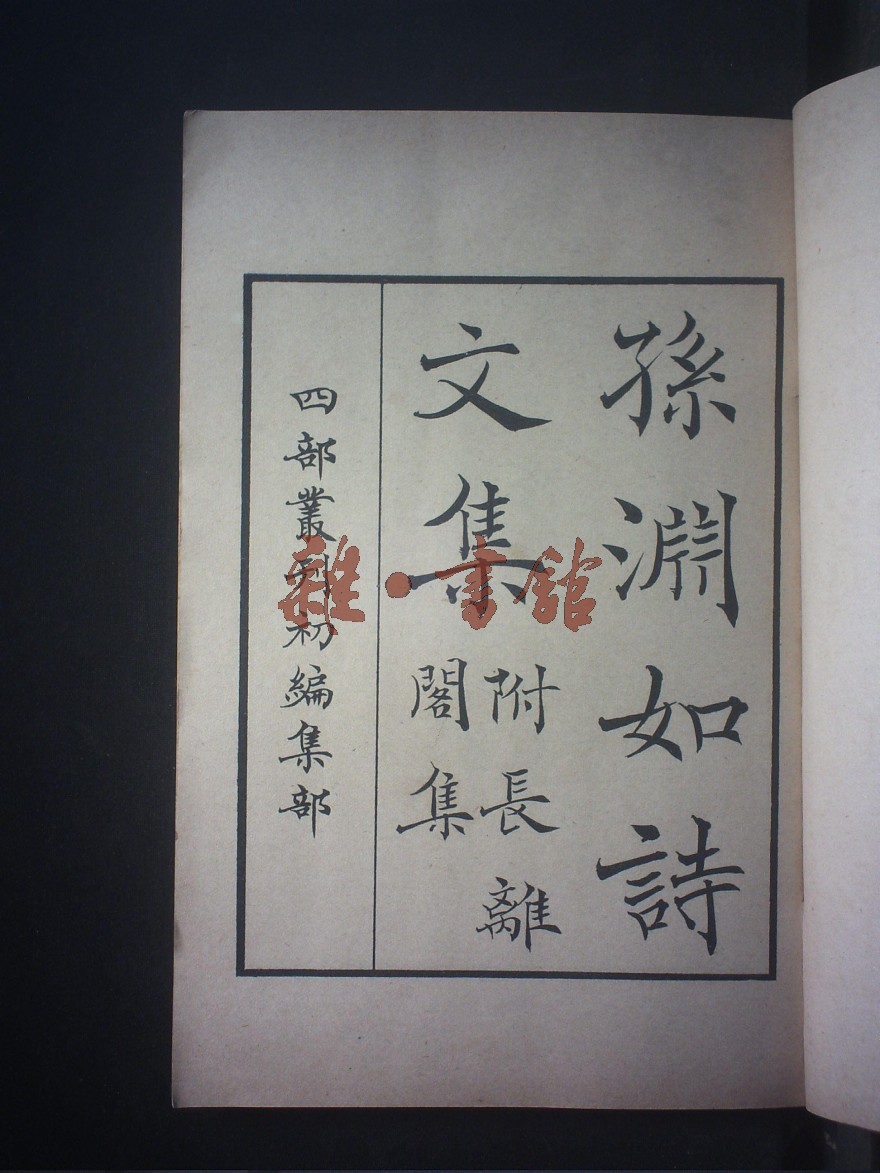 孫淵如詩
文集
附長離
閣集
四部叢刊初編集部
雜·書館